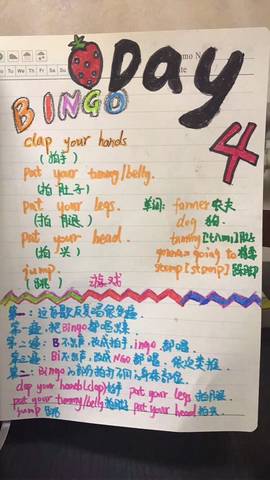 Day 4
BINGO
clap your hands
(拍手)
pat your tummy/belly.
(拍肚子)
pat your legs.
(拍腿)
pat your head.
(拍头)
jump.
(跳)
单词: farmer 农夫
dog 狗
gonna=going to
stomp[stomp]
游戏
第一:这首歌反复唱很多遍.
第一遍:把Bingo都唱出来
第二遍:B不出声,改成拍手,ingo 都唱
第三遍:Bi不出声,改成NGO都唱 依次类推
第二:Bingo的部分拍打不同的身体部位
clap your hands(clap)拍手 pat your legs 拍腿
pat your tummy/belly拍肚 pat your head 拍头
jump 跳